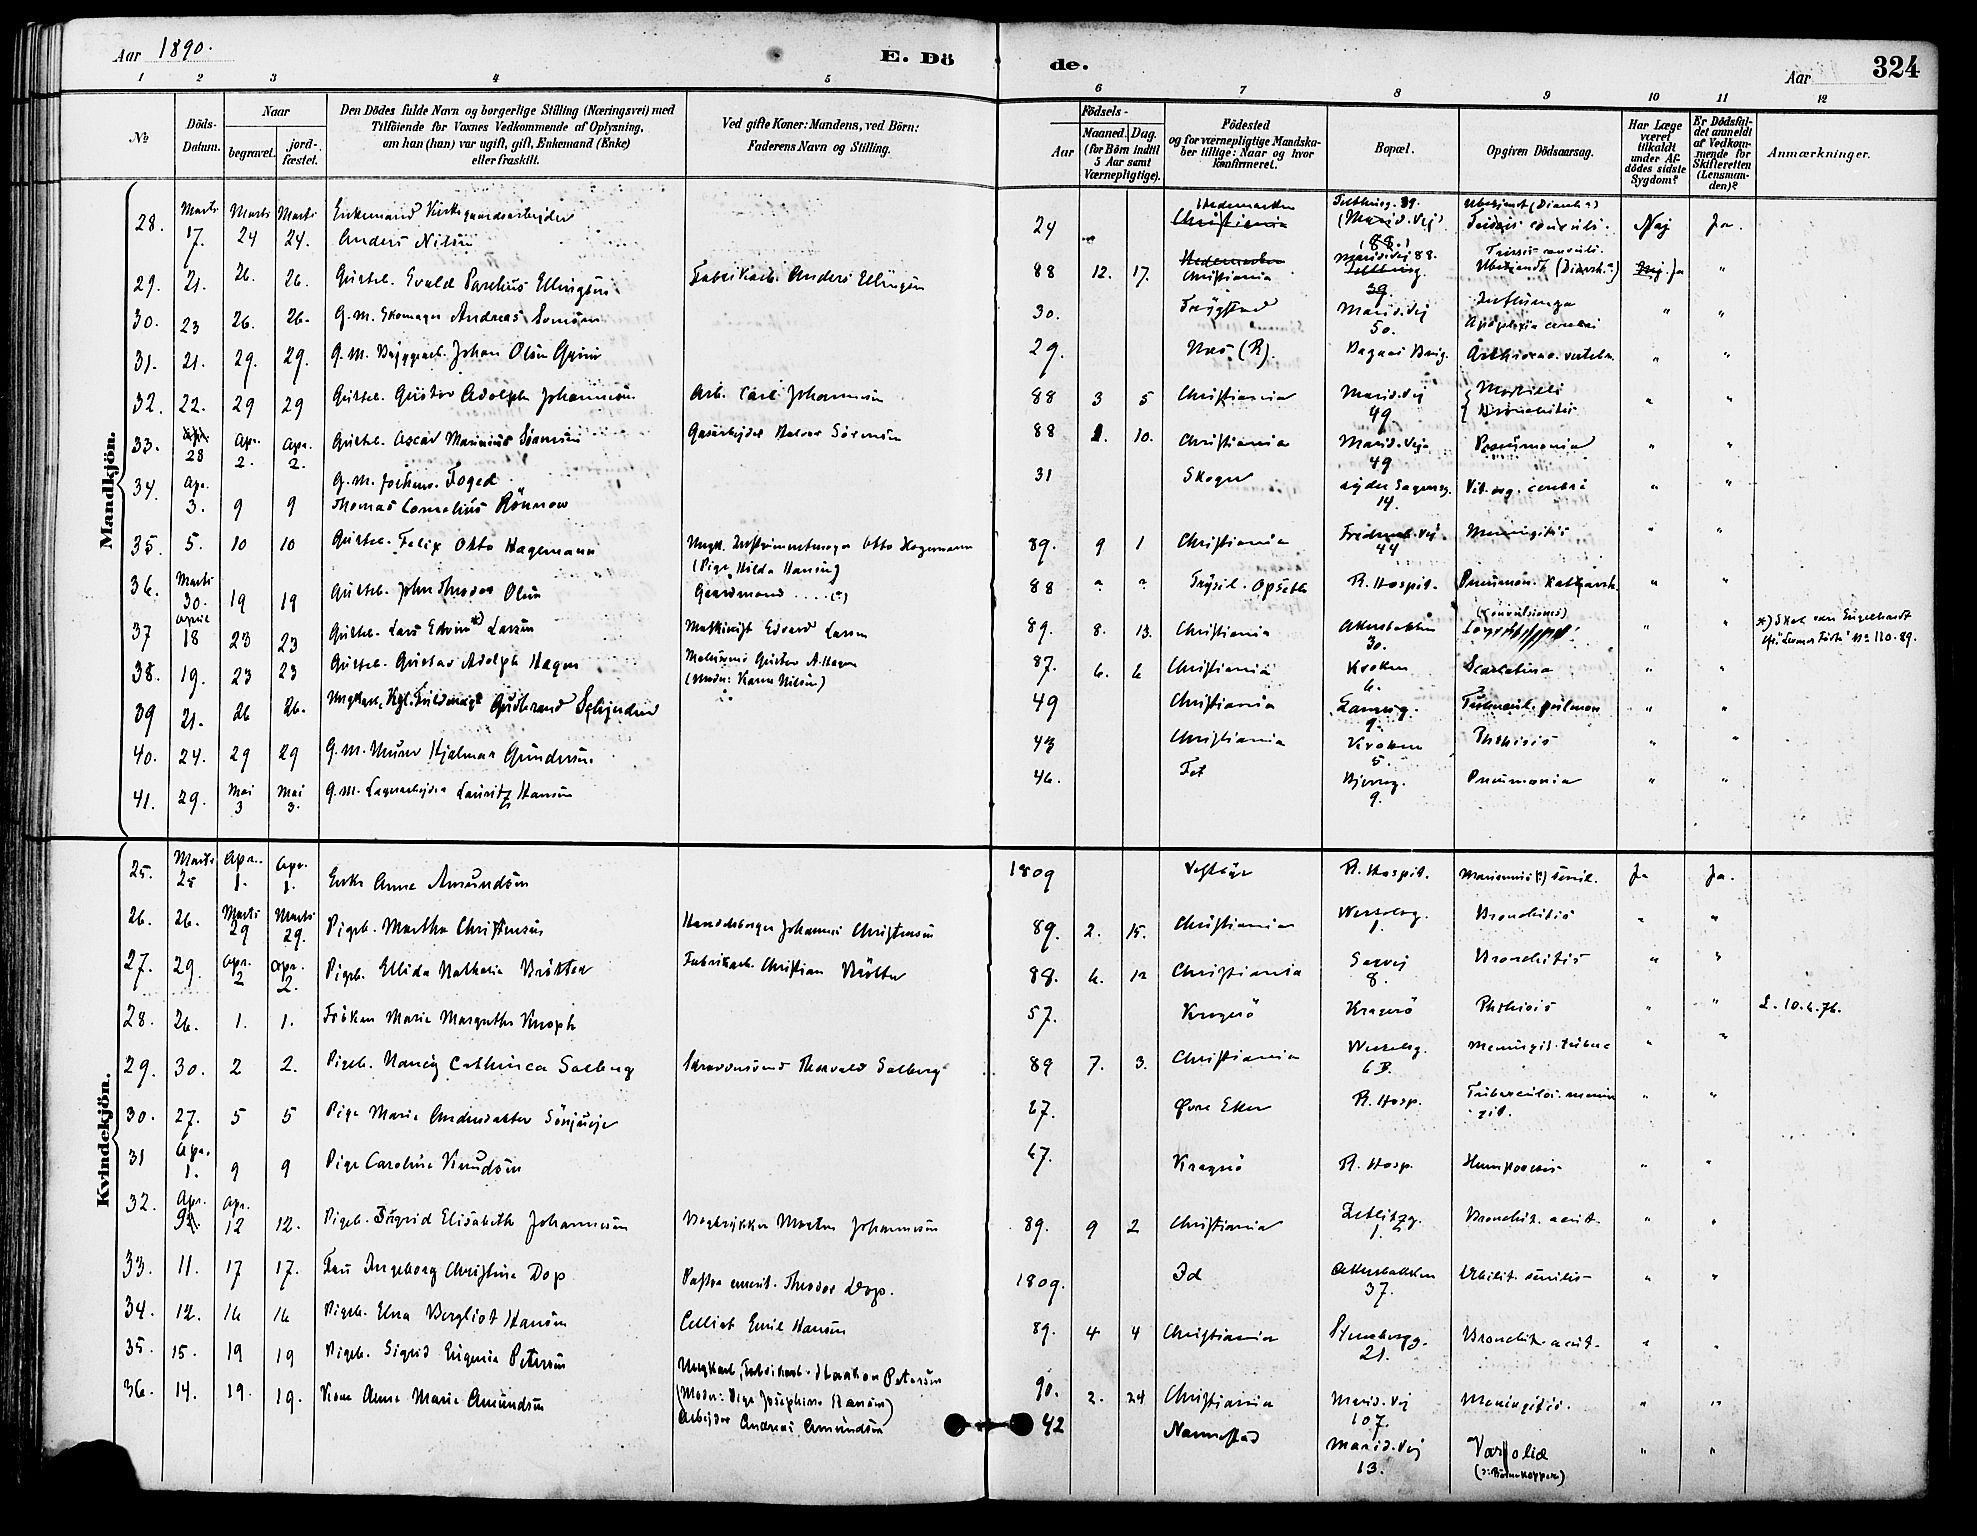 Aar 1890.
E. Dö
de.
Aar
324
1 2 3 4 5 6 7 8 9 10 11 12
No
Döds-Datum.
Naar
begravet.
jord-fæstet.
Den Dödes fulde Navn og borgerlige Stilling (Næringsvei) med
Tilföiende for Voxnes Vedkommende af Oplysning,
om han (hun) var ugift, gift, Enkemand (Enke)
eller fraskilt.
Ved gifte Koner: Mandens, ved Börn:
Faderens Navn og Stilling.
Födsels-
Aar
Maaned. Dag.
(for Börn indtil
5 Aar samt
Værnepligtige).
Födested
og for værnepligtige Mandska-
ber tillige: Naar og hvor
konfirmeret.
Bopæl.
Opgiven Dödsaarsag.
Har Læge
været
tilkaldt
under Af-
dödes sidste
Sygdom?
Er Dödsfal-
det anmeldt
af Vedkom-
mende for
Skifteretten
(Lensman-
den)?
Anmærkninger.
Mandkjön.
28. Marts 17. Marts 24 Marts 24. Enkemand Kirkegaardsarbejder Anders Nilsen 24 Hedemarken Christiania Nej Ja.
29. 21. 26. 26. Gutteb. Evald Parelius Ellingsen Fabrikarb. Anders Ellingsen 88 12. 17. Hedemarken Christiania Marid.vej 88. Ja "
30. 23 26. 26. G. m. Skomager Andreas 30. Trygstad Marid.vej 50. Influenza Apoplexia cerebri " "
31. 21. 29. 29. G. m. Byggearb. Johan Olsen 29. Næs (R). " "
32. 22. 29 29 Gutteb. Gustav Adolph Johannesen Arb. Carl Johannesen 88 3 5 Christiania Marid.vej 49 Morbilli Bronchitis " "
33. 28 Apr. 2. Apr. 2. Gutteb. Oscar Marinius Sörensen Gasarbejder Halvor Sörensen 88 1. 10. Christiania Marid.vej 49 Pneumonia " "
34. Apr. 3. 9 9 G. m. forhenv. Foged Thomas Cornelius Rönnow 31 Skoger 14. Vit. org. cerebri " "
35. 5. 10 10 Gutteb. Felix Otto Hagemann Ungk. Instrumentmager Otto Hagemann (Pige Hilda Hansen) 89. 9 1 Christiania 44 Meningitis " "
36. Marts 30. 19 19 Gutteb. John Theodor Olsen Gaardmand .... (?) 88 " " Trysil. Opsett. R. Hospit. Pneumon. Katharrh. " "
37 April 18 23 23 Gutteb. Lars Edvin *) Larsen Maskinist Edvard Larsen 89. 8. 13. Christiania Akersbakken 30. (Convulsiones) " " *) Skal være Engelhardt
38. 19. 23 23 Gutteb. Gustav Adolph Hagen Gustav A. Hagen (Moder: Karen Nilsen) 87. 6. 6 Christiania Kroken 6. Scarlatina " "
39 21. 26 26. Ungkarl, Kgl. Fuldmægt. Gudbrand 49 Christiania 9. Tubercul. pulmon " "
40. 24. 29 29 G. m. Murer Hjalmar Gundersen 43 Christiania Kroken 5. Phthisis " "
41. 29. Mai 3 Mai 3. G. m. Lagerarbejder Lauritz Hansen 46. Fet Bjerreg. 9. Pneumonia " "
Kvindekjön.
25. Marts 25 Apr. 1. Apr. 1. Enke Anne Amundsen 1809 R. Hospit. Marasmus (?) senil. Ja Ja.
26. 26. Marts 29 Marts 29. Pigeb. Martha Christensen Handelsborger Johannes Christensen 89. 2. 15. Christiania Wesselsg. 1. Bronchitis " "
27. 29. Apr. 2 Apr. 2. Pigeb. Ellida Nathalia Bråtter Fabrikarb. Christian Bråtter 88. 6. 12 Christiania 8. Bronchitis " "
28. 26. 1. 1. Fröken Marie Margrethe Knoph 57. Kragerö Kragerö Phthisis " " L. 10.4.76.
29. 30. 2 2. Pigeb. Nancy Cathinca Solberg Thorvald Solberg 89 7. 3. Christiania Wesselsg. 6 B. Meningit. tuberc " "
30. 27. 5 5 Pige Marie Andersdatter 67. Övre Eker R. Hosp. Tuberculos. meningit. " "
31 Apr. 1. 9 9 Pige Caroline Knudsen 67. Kragerö R. Hosp. " "
32. Apr. 9 Apr. 12 12. Pigeb. Sigrid Elisabeth Johannesen Bogtrykker Morten Johannesen 89. 9 2 Christiania Zetlitzg. 1. Bronchit. acut. " "
33. 11. 17 17. Fru Ingeborg Christine Dop Pastor emerit. Theodor Dop. 1809. Id Akersbakken 37. Debilit. senilis " "
34. 12. 16 16 Pigeb. Elna Bergliot Hansen Cellist Emil Hansen 89. 4 4 Christiania Stensbergg. 21. Bronchit. acut. " "
35. 15. 19 19 Pigeb. Sigrid Eugenia Petersen Ungkarl, Fabrikarb. Haakon Petersen (Moder: Pige Josephine Hansen) 90. 2. 24 Christiania Marid.vej 107. Meningitis. " "
36. 14. 19. 19. Kone Anne Marie Amundsen Arbejder Andreas Amundsen 42 Nannestad Marid.vej 13. Variolæ (o: Börnekopper) " "